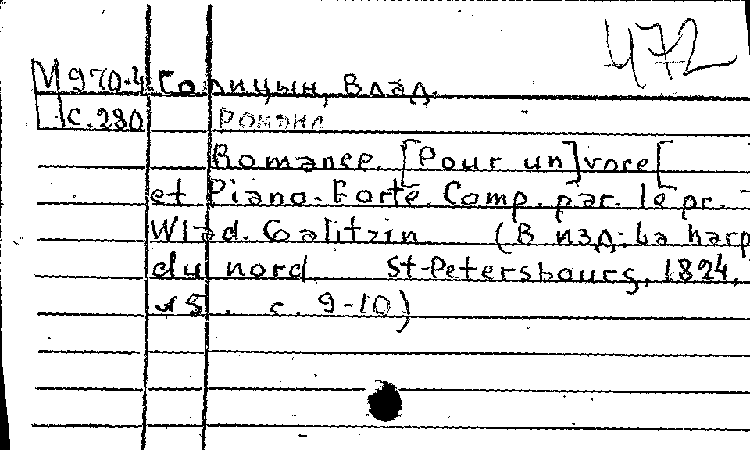 472
М 970-4 Голицын, Влад.
с. 280 Романс
Romance. [Pour un] voce [
et Piano-Forte. Comp. par. le pr.
Wlad. Galitzin (В изд: La harp
du nord St-Petersbourg, 1824,
с. 9-10)